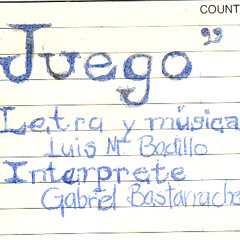 COUNT
Juego"
Letra y música
Luis Mª Badillo
Interprete
Gabriel Bastarrache